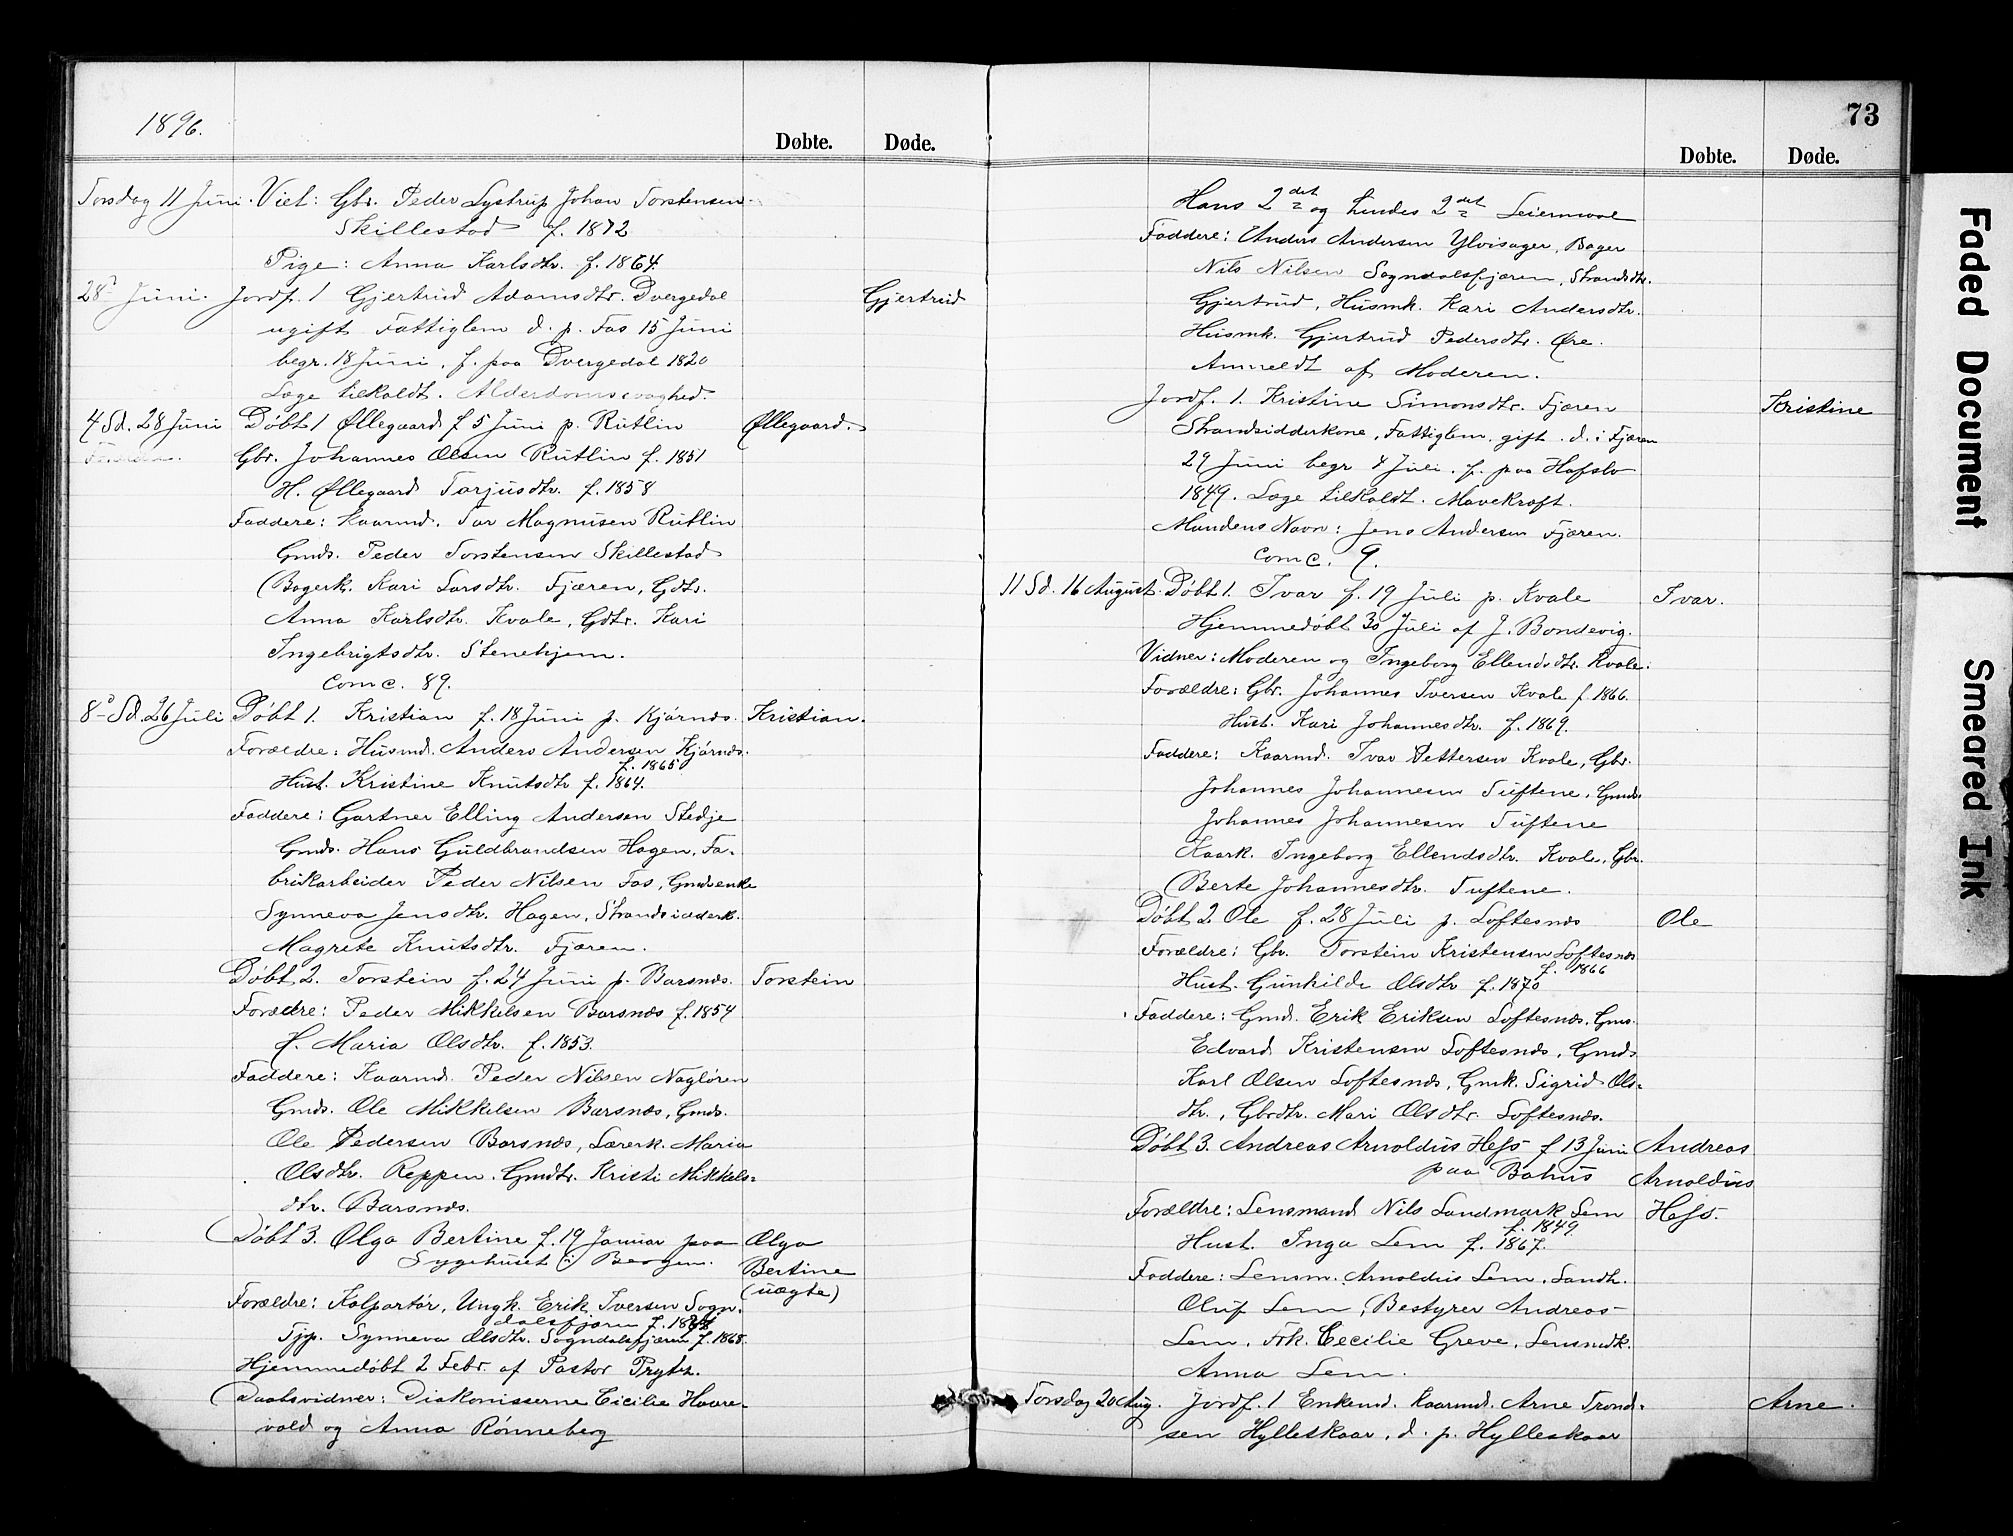 1896.
Døbte. Døde.
Torsdag 11 Juni. Viet: Gbr. Peder Lystrup Johan Torstensen
Skillestad f. 1872
Pige: Anna Karlsdtr. f. 1864.
28 Juni. Jordf. 1 Gjertrud Adamsdtr. Dvergedal Gjertrud
ugift Fattiglem d. p. Fos 15 Juni
begr. 18 Juni, f. paa Dvergedal 1820
Læge tilkaldt. Alderdomssvaghed.
4 Sd. 28 Juni Døbt 1 Øllegaard f 5 Juni p. Rutlin Øllegaard.
Gbr. Johannes Olsen Rutlin f. 1851
H. Øllegaard Torjusdtr. f. 1858
Faddere: Kaarmd. Tor Magnusen Rutlin
Gmds. Peder Torstensen Skillestad
Bagerk. Kari Larsdtr. Fjæren, Gdtr.
Anna Karlsdtr. Kvale, Gdtr. Kari
Ingebrigtsdtr. Stenehjem.
Comc. 89.
8 Sd. 26 Juli Døbt 1. Kristian f. 18 Juni p. Kjørnæs. Kristian.
Forældre: Husmd. Anders Andersen Kjørnæs.
f. 1865
Hust. Kristine Knutsdtr f. 1864.
Faddere: Gartner Elling Andersen Stedje
Gmds. Hans Guldbrandsen Hagen, Fa-
brikarbeider Peder Nilsen Fos, Gmdsenke
Synneva Jensdtr. Hagen, Strandsidderk.
Magrete Knutsdtr. Fjæren.
Døbt 2. Torstein f. 24 Juni p. Barsnæs. Torstein
Forædre: Peder Mikkelsen Barsnæs f. 1854
H. Maria Olsdtr. f. 1853.
Faddere: Kaarmd. Peder Nilsen Nagløren
Gmds. Ole Mikkelsen Barsnæs, Gmds.
Ole Pedersen Barsnæs, Lærerk. Maria
Olsdtr. Reppen. Gmdtr. Kristi Mikkels-
dtr. Barsnæs.
Døbt 3. Olga Bertine f. 19 Januar paa Olga
Sygehuset i Bergen. Bertine
(uægte)
Forældre: Kolportør, Ungk. Erik Iversen Sogn-
dalsfjæren f.
Tjp. Synneva Olsdtr. Sogndalsfjæren f. 1868.
Hjemmedøbt 2 Febr. af Pastor Prytz.
Daabsvidner: Diakonisserne Cicilie Haare-
vold og Anna Rønneberg
73
Døbte. Døde.
Hans 2det og hendes 2det Leiermaal
Faddere: Anders Andersen Ylvisager, Bager
Nils Nilsen Sogndalsfjæren, Strandsdtr.
Gjertrud, Husmk. Kari Andersdtr.
Husmk. Gjertrud Pedersdtr. Øre.
Anmeldt af Moderen.
Jordf. 1. Kristine Simonsdtr. Fjæren Kristine
Strandsidderkone, Fattiglem, gift. d. i Fjæren
29 Juni begr 4 Juli, f. paa Hafslo
1849. Læge tilkaldt. Mavekræft.
Mandens Navn: Jens Andersen Fjæren.
Comc. 9.
11 Sd. 16 August. Døbt 1. Ivar f. 19 Juli p. Kvale Ivar.
Hjemmedøbt 30 Juli af J. Bondevig.
Vidner: Moderen og Ingeborg Ellendsdtr. Kvale.
Forældre: Gbr. Johannes Iversen Kvale f. 1866.
Hust. Kari Johannesdtr. f. 1869.
Faddere: Kaarmd. Ivar Pettersen Kvale, Gbr.
Johannes Johannesen Tuftene, Gmds
Johannes Johannesen Tuftene
Kaark. Ingeborg Ellendsdtr. Kvale, Gbr.
Berte Johannesdtr. Tuftene.
Døbt 2. Ole f. 28 Juli p. Loftesnæs Ole
Forældre: Gbr. Torstein Kristensen Loftesnæs
f. 1866
Hust. Gunhilde Olsdtr f. 1870
Faddere: Gmd. Erik Eriksen Loftesnæs, Gms.
Edvard Kristensen Loftesnæs, Gmds
Karl Olsen Loftesnæs, Gmk. Sigrid Ols-
dtr., Gbrdtr. Mari Olsdtr. Loftesnæs.
Døbt 3. Andreas Arnoldus Hess f 13 Juni Andreas
paa Bahus Arnoldus
Forældre: Lensmand Nils Landmark Lem Hess.
f. 1849.
Hust. Inga Lem f. 1867.
Faddere: Lensm. Arnoldus Lem, Landh.
Oluf Lem, Bestyrer Andreas
Lem, Frk. Cecilie Greve, Lensmdk.
Anna Lem.
Torsdag 20 Aug. Jordf. 1 Enkemd. Kaarmd. Arne Trond- Arne.
sen Hylleskaar, d. p. Hylleskaar
Faded Document
Smeared Ink